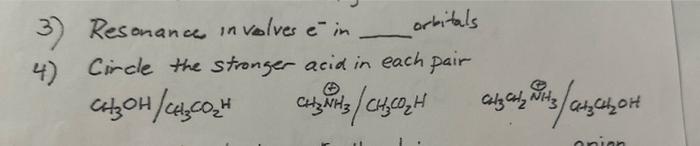 3) Resonance involves e⁻ in ____ orbitals
4) Circle the stronger acid in each pair
CH₃OH/CH₃CO₂H CH₃N⊕H₃/CH₃CO₂H CH₃CH₂N⊕H₃/CH₃CH₂OH